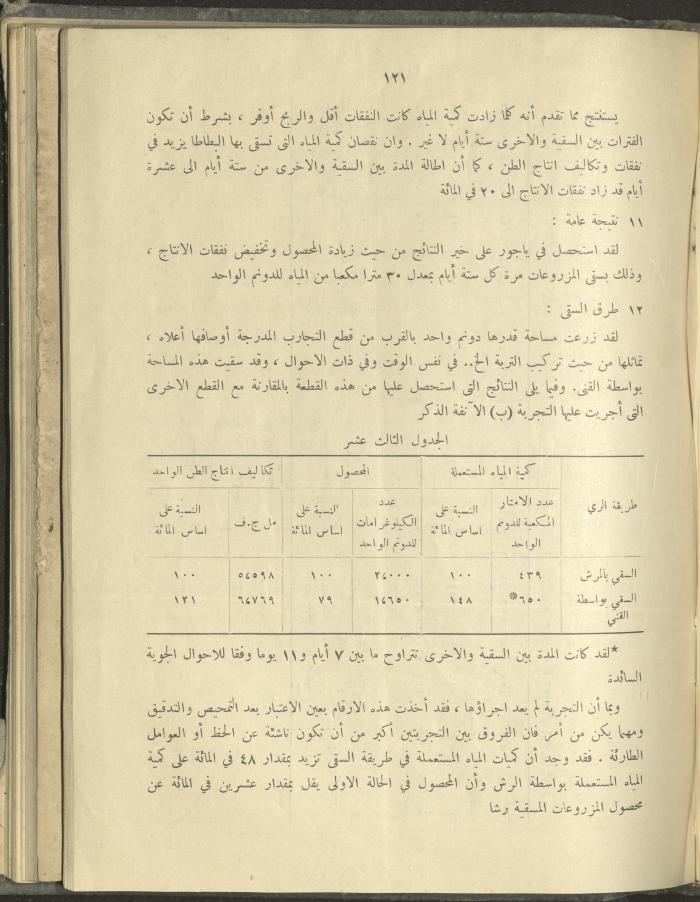 ١٢١
يستنتج مما تقدم أنه كلما زادت كمية المياه كانت النفقات أقل والربح أوفر ، بشرط أن تكون
الفترات بين السقية والاخرى ستة أيام لا غير . وان نقصان كمية المياه التى تسقى بها البطاطا يزيد في
نفقات وتكاليف انتاج الطن ، كما أن اطالة المدة بين السقية والاخرى من ستة أيام الى عشرة
أيام قد زاد نفقات الانتاج الى ٢٠ في المائة
١١ نتيجة عامة :
لقد استحصل في ياجور على خير النتائج من حيث زيادة المحصول وتخفيض نفقات الانتاج ،
وذلك بسقى المزروعات مرة كل ستة أيام بمعدل ٣٠ مترا مكعبا من المياه للدونم الواحد
١٢ طرق السقى :
لقد زرعت مساحة قدرها دونم واحد بالقرب من قطع التجارب المدرجة أوصافها أعلاه ،
تماثلها من حيث تركيب التربة الخ.. في نفس الوقت وفي ذات الاحوال ، وقد سقيت هذه المساحة
بواسطة القنى. وفيما يلى النتائج التى استحصل عليها من هذه القطعة بالمقارنة مع القطع الاخرى
التى أجريت عليها التجربة (ب) الآنفة الذكر
الجدول الثالث عشر
طريقة الري
كمية المياه المستعملة
المحصول
تكاليف انتاج الطن الواحد
عدد الامتار المكعبة للدونم الواحد
النسبة على اساس المائة
عدد الكيلوغرامات للدونم الواحد
النسبة على اساس المائة
مل ج.ف
النسبة على اساس المائة
السقي بالرش ٤٣٩ ١٠٠ ٢٬٠٠٠ ١٠٠ ٥٬٥٩٨ ١٠٠
السقي بواسطة القني ٦٥٠* ١٤٨ ١٬٦٥٠ ٧٩ ٦٬٧٦٩ ١٢١
*لقد كانت المدة بين السقية والاخرى تتراوح ما بين ٧ أيام و١١ يوما وفقا للاحوال الجوية
السائدة
وبما أن التجربة لم يعد اجراؤها ، فقد أخذت هذه الارقام بعين الاعتبار بعد التمحيص والتدقيق
ومهما يكن من أمر فان الفروق بين التجربتين أكبر من أن تكون ناشئة عن الحظ أو العوامل
الطارئة . فقد وجد أن كميات المياه المستعملة في طريقة السقى تزيد بمقدار ٤٨ في المائة على كمية
المياه المستعملة بواسطة الرش وأن المحصول في الحالة الاولى يقل بمقدار عشرين في المائة عن
محصول المزروعات المسقية رشا